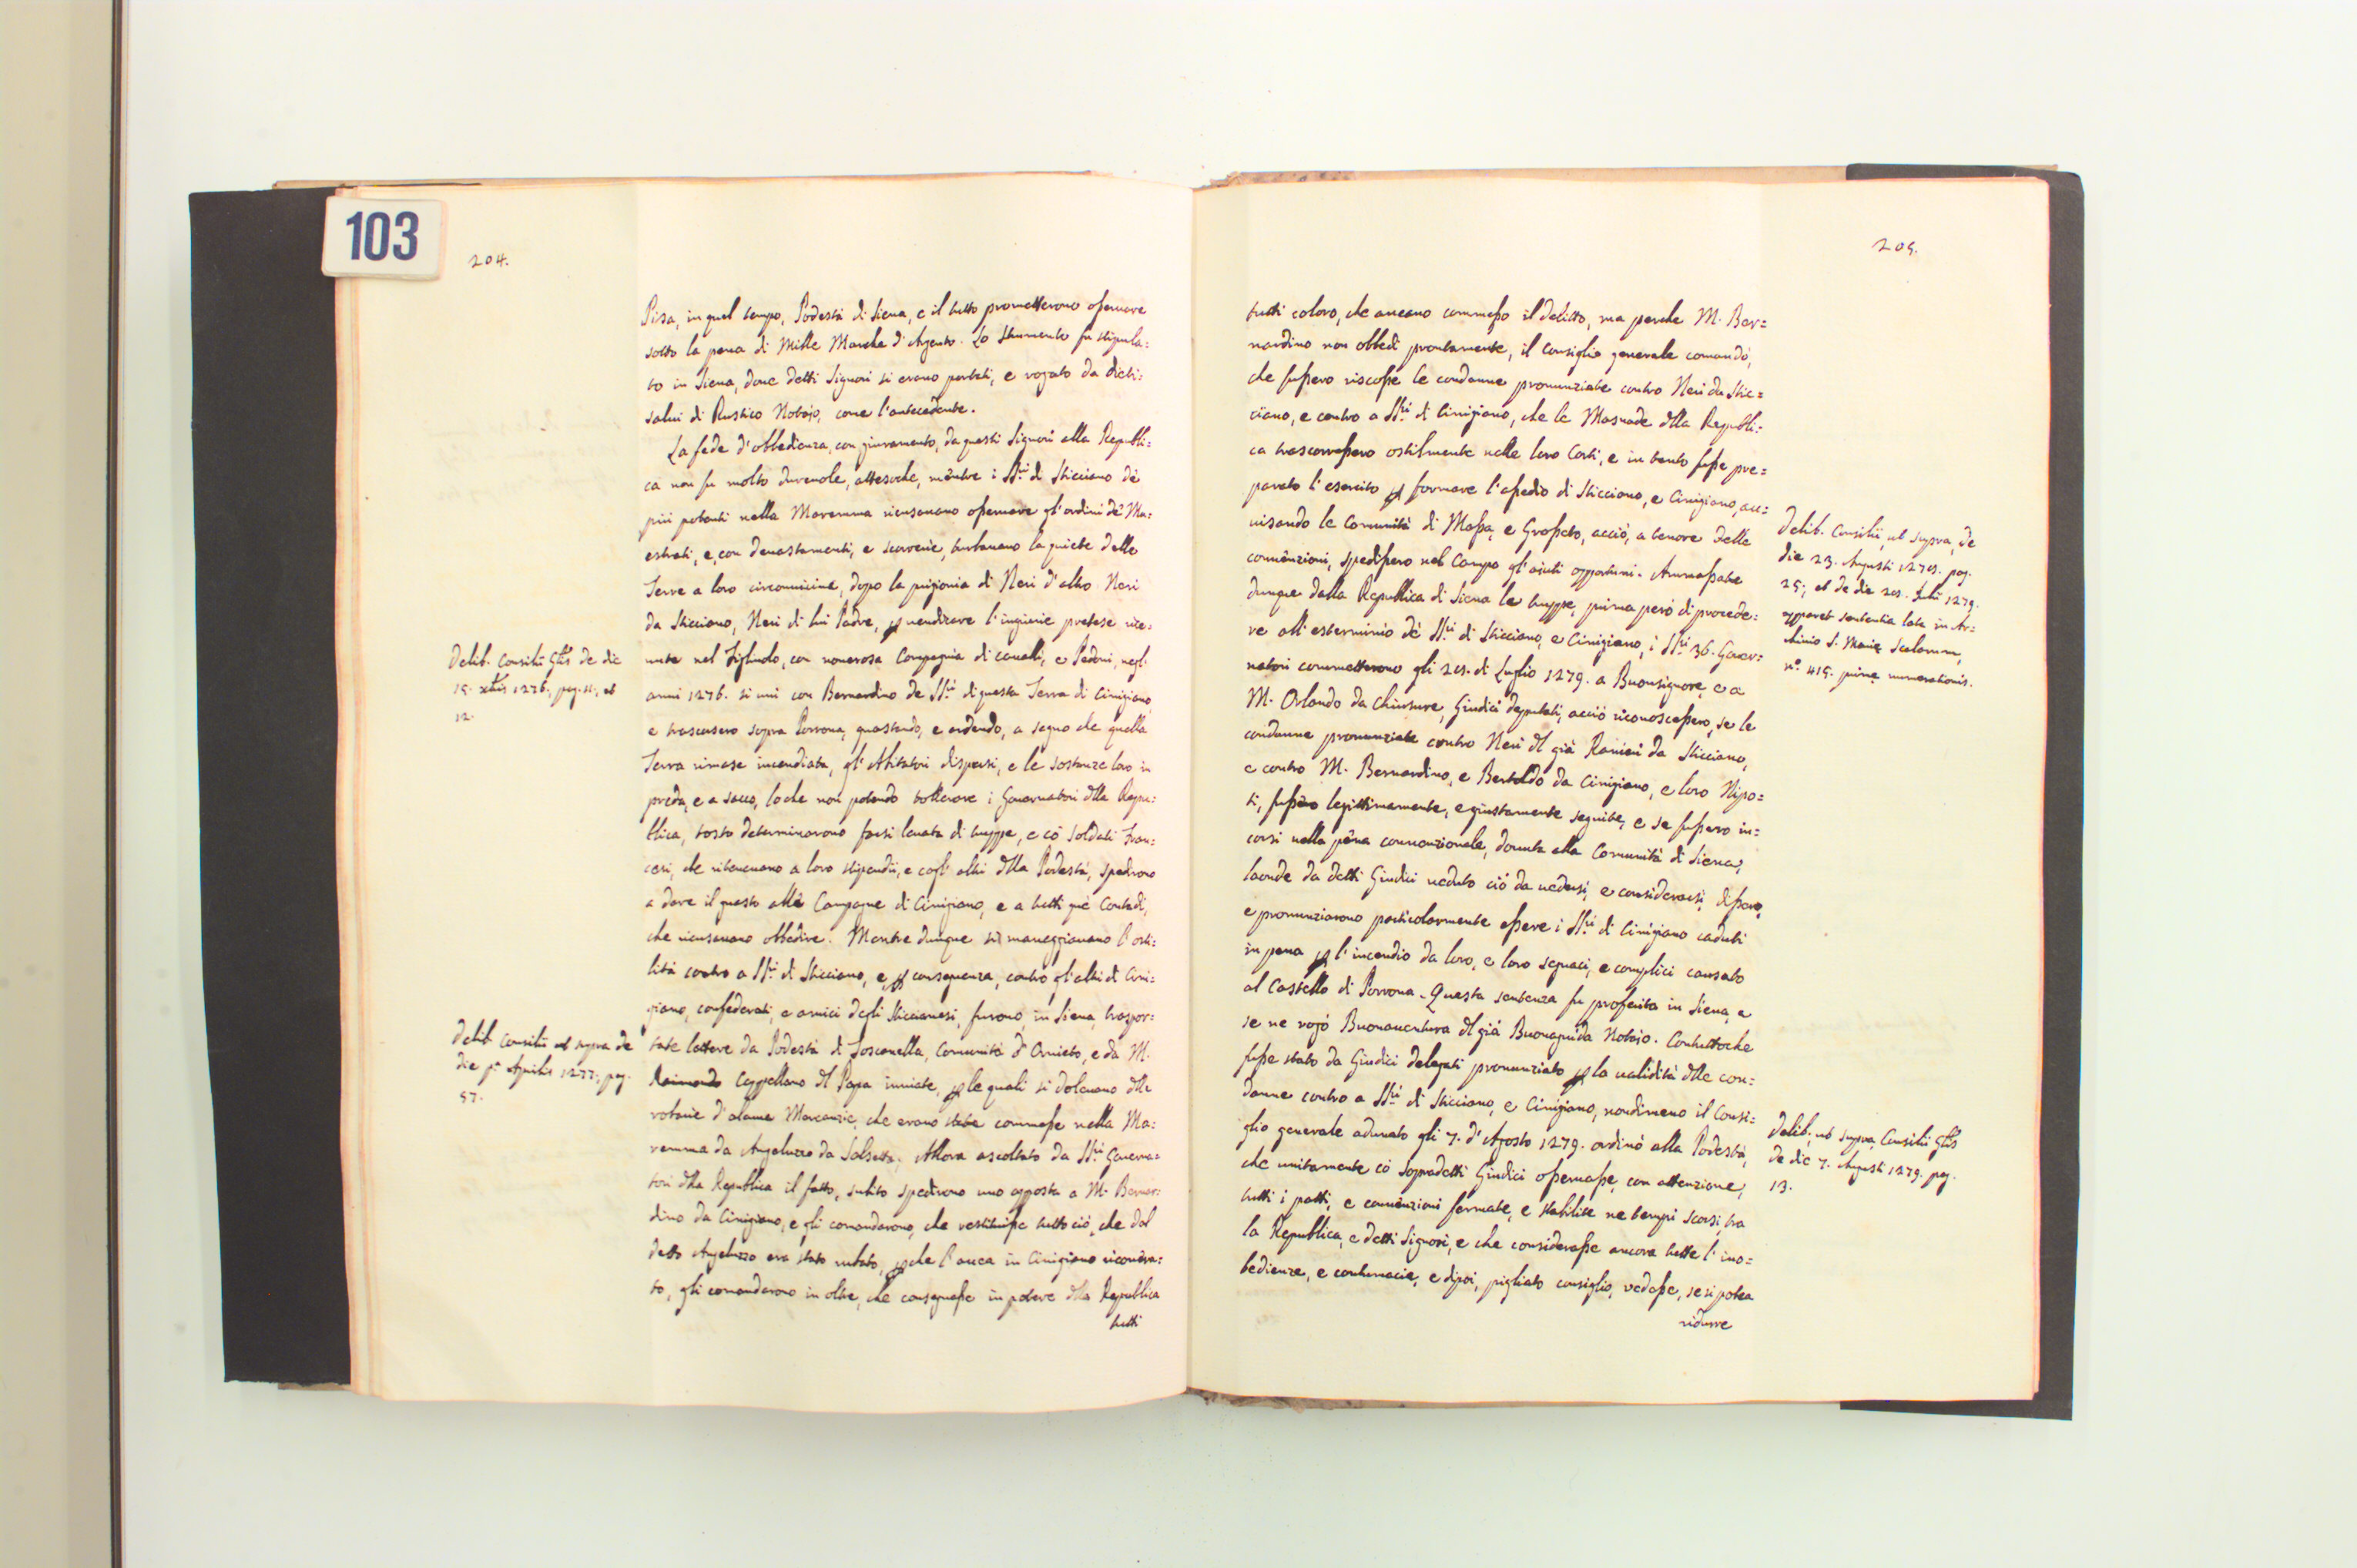 103
204.
Pisa, in quel tempo, Podestà di Siena, e il tutto prometterono osservare
sotto la pena di Mille Marche d'Argento. Lo Strumento fu stipula=
to in Siena, doue detti Signori si erano portati, e rogato da Dieti=
salui di Rustico Notajo, come l'antecedente.
La fede d'obbedienza, con giuramento, da questi Signori alla Republi=
ca non fu molto dureuole, attesoche, mentre i SS.ri di Sticciano dè
più potenti nella Maremma ricusauano osseruare gl'ordini dè Ma=
estrati, e, con deuastamenti, e scorrerie, turbauano la quiete delle
Terre a loro circonuicine, dopo la prigionia di Neri d'altro Neri
da Sticciano, Neri di lui Padre, p uendicare l'ingiurie pretese rice=
uute nel Figliuolo, con numerosa Compagnia di caualli, e Pedoni, negl'
anni 1276. si unì con Bernardino de SS.ri di questa Terra di Cinigiano,
e trascorsero sopra Porrona, guastando, e ardendo, a segno che quella
Terra rimase incendiata, gl'Abitatori dispersi, e le sostanze loro in
preda, e a sacco, loche non potendo tollerare i Gouernatori dlla Repu=
blica, tosto determinarono farsi leuata di truppe, e có soldati Fran=
cesi, che riteneuano a loro stipendii, e cogl'altri dlla Podestà, spedirono
a dare il guasto alle Campagne di Cinigiano, e a tutti què Contadi,
che ricusauano obbedire. Mentre dunque si maneggiauano l'osti=
lità contro a SS.ri di Sticciano, e, p conseguenza, contro gl'altri di Cini=
giano, confederati, e amici degli Sticcianesi, furono, in Siena, traspor=
tate lettere da Podestà di Toscanella, Comunità d'Oruieto, e da M.
Raimondo Cappellano dl Papa inuiate, p le quali si doleuano dlle
robarie d'alcune Mercanzie, che erano state commesse nella Ma=
remma da Angeluzzo da Salsetta; Allora ascoltato da SS.ri Gouerna=
tori dlla Republica il fatto, subito spedirono uno apposta a M. Bernar=
dino da Cinigiano, e gli comandarono, che restituisse tutto ció, che dal
detto Angeluzzo era stato rubato, p che l'auea in Cinigiano ricouera=
to, gli comandarono in oltre, che consegnasse in potere dlla Republica
tutti
Delib. Consilii Glis de die
15. Xbris 1276., pag. 11., et
12.
Delib. Consilii ut supra de
die p.a Aprilis 1277., pag.
57.
205.
tutti coloro, che aueano commesso il delitto, ma perche M. Ber=
nardino non obbedì prontamente, il Consiglio generale comandó,
che fussero riscosse le condanne pronunziate contro Neri da Stic=
ciano, e contro a SS.ri di Cinigiano, che le Masnade dlla Republi=
ca trascorressero ostilmente nelle loro Corti, e in tanto fusse pre=
parato l'esercito p formare l'assedio di Sticciano, e Cinigiano, au=
uisando le Comunità di Massa, e Grosseto, acció, a tenore delle
conuenzioni, spedissero nel Campo gl'aiuti opportuni. Ammassate
dunque dalla Republica di Siena le truppe, prima peró di procede=
re all'esterminio dè SS.ri di Sticciano, e Cinigiano, i SS.ri 36. Gouer=
natori commetterono gli 20. di Luglio 1279. a Buonsignore, e a
M. Orlando da Chiusure, Giudici deputati, acció riconoscessero, se le
condanne pronunziate contro Neri dl già Ranieri da Sticciano,
e contro M. Bernardino, e Bertoldo da Cinigiano, e loro Nipo=
ti, fussero legittimamente, e giustamente seguite, e se fussero in=
corsi nella pena conuenzionale, douuta alla Comunità di Siena,
laonde da detti Giudici ueduto ció da uedersi, e considerarsi, dissero,
e pronunziarono particolarmente essere i SS.ri di Cinigiano caduti
in pena p l'incendio da loro, e loro seguaci, e complici causato
al Castello di Porrona. Questa sentenza fu proferita in Siena, e
se ne rogó Buonauentura dl già Buonaguida Notajo. Contuttoche
fusse stato da Giudici delegati pronunziato p la ualidità dlle con=
danne contro a SS.ri di Sticciano, e Cinigiano, nondimeno il Consi=
glio generale adunato gli 7. d'Agosto 1279. ordinó alla Podestà,
che unitamente có sopradetti Giudici osseruasse, con attenzione,
tutti i patti, e conuenzioni fermate, e stabilite ne tempi scorsi, tra
la Republica, e detti Signori, e che considerasse ancora tutte l'ino=
bedienze, e contumacie, e dipoi, pigliato consiglio, vedesse, se si potea
ridurre
Delib. Consilii, ut supra, de
die 23. Augusti 1279. pag.
25., et de die 20. Julii 1279.
apparet sententia lata in Ar=
chiuio S. Mariæ Scalarum,
n.o 415. primæ numerationis.
Delib., ut supra, Consilii Glis
de die 7. Augusti 1279. pag.
13.